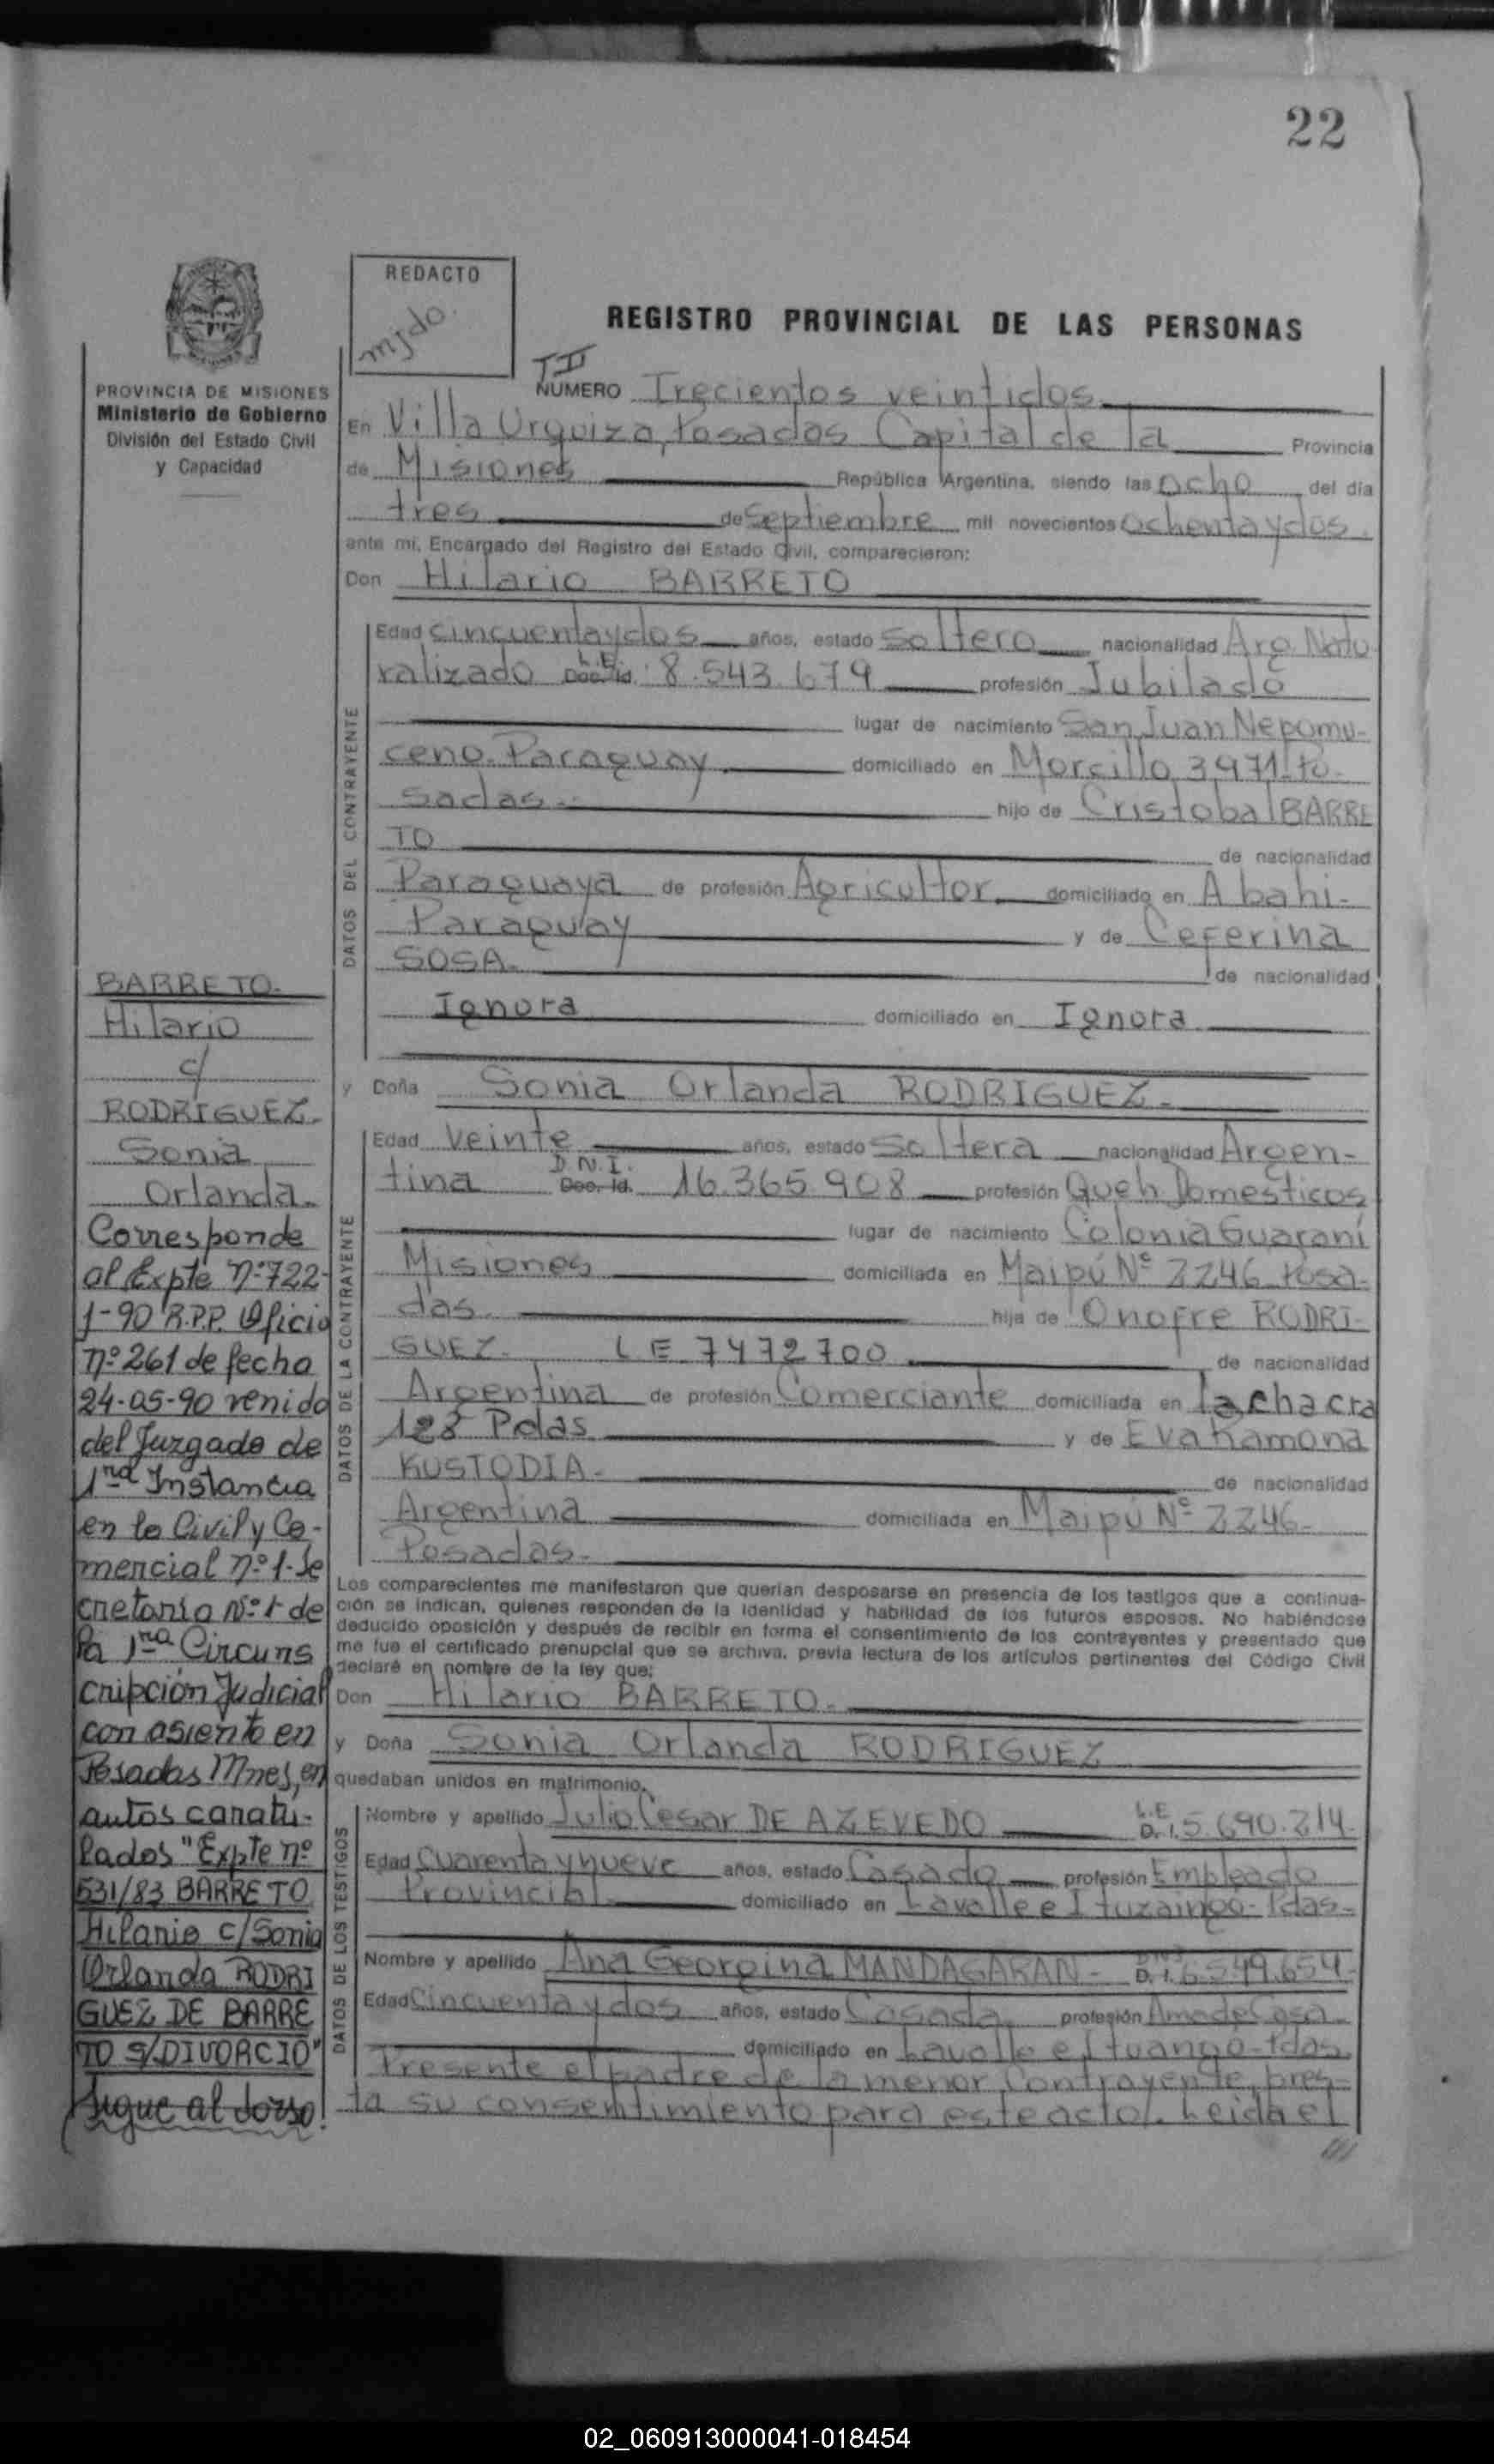 22
REDACTO
mjdo.
REGISTRO PROVINCIAL DE LAS PERSONAS
PROVINCIA DE MISIONES
Ministerio de Gobierno
División del Estado Civil
y Capacidad
T II
NUMERO Trecientos veintidos
En Villa Urquiza, Posadas Capital de la Provincia
de Misiones República Argentina, siendo las ocho del día
tres de Septiembre mil novecientos ochenta y dos.
ante mí, Encargado del Registro del Estado Civil, comparecieron:
Don Hilario BARRETO
DATOS DEL CONTRAYENTE
Edad cincuenta y dos años, estado Soltero nacionalidad Arg. Natu
ralizado L.E. Doc. Id. 8.543.679 profesión Jubilado
lugar de nacimiento San Juan Nepomu-
ceno. Paraguay. domiciliado en Morcillo 3971-Po-
sadas.- hijo de Cristobal BARRE
TO de nacionalidad
Paraguaya de profesión Agricultor domiciliado en Abahi-
Paraguay y de Ceferina
SOSA. de nacionalidad
Ignora domiciliado en Ignora
y Doña Sonia Orlanda RODRIGUEZ.-
DATOS DE LA CONTRAYENTE
Edad veinte años, estado Soltera nacionalidad Argen-
tina D.N.I. Doc. Id. 16.365.908 profesión Queh. Domesticos
lugar de nacimiento Colonia Guaraní
Misiones domiciliada en Maipú Nº 2246 Posa-
das. hija de Onofre RODRI-
GUEZ. L E 7472700 de nacionalidad
Argentina de profesión Comerciante domiciliada en la chacra
128 Pdas y de Eva Ramona
KUSTODIA.- de nacionalidad
Argentina domiciliada en Maipú Nº 2246.-
Posadas.-
Los comparecientes me manifestaron que querían desposarse en presencia de los testigos que a continua-
ción se indican, quienes responden de la identidad y habilidad de los futuros esposos. No habiéndose
deducido oposición y después de recibir en forma el consentimiento de los contrayentes y presentado que
me fue el certificado prenupcial que se archiva, previa lectura de los artículos pertinentes del Código Civil
declaré en nombre de la ley que:
Don Hilario BARRETO.-
y Doña Sonia Orlanda RODRIGUEZ
quedaban unidos en matrimonio.
DATOS DE LOS TESTIGOS
Nombre y apellido Julio Cesar DE AZEVEDO L.E D. I. 5.690.214.
Edad Cuarenta y nueve años, estado Casado profesión Empleado
Provincial. domiciliado en Lavalle e Ituzaingo- Pdas-
Nombre y apellido Ana Georgina MANDAGARAN- D. I. 6.549.654-
Edad Cincuenta y dos años, estado Casada profesión Ama de Casa
domiciliado en Lavalle e Ituango-Pdas.
Presente el padre de la menor Contrayente, pres-
ta su consentimiento para este acto/. Leida el
///
BARRETO.-
Hilario
c/
RODRIGUEZ.
Sonia
Orlanda.
Corresponde
al Expte Nº 722-
1-90 R.P.P. Oficio
nº 261 de fecha
24-05-90 venido
del Juzgado de
1ra Instancia
en lo Civil y Co-
mercial nº 1-Se
cretaria Nº 1 de
la 1ra Circuns
cripción Judicial
con asiento en
Posadas Mnes, en
autos caratu-
lados "Expte nº
531/83 BARRETO
Hilario c/Sonia
Orlanda RODRI
GUEZ DE BARRE
TO S/DIVORCIO"
Sigue al dorso!
02_060913000041-018454